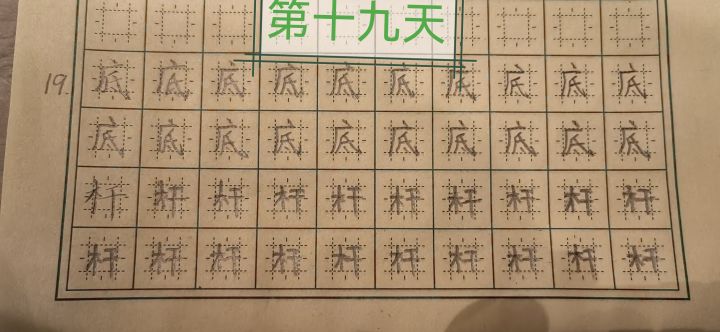 第十九天
19. 底底底底底底底底底底
底底底底底底底底底底
杆杆杆杆杆杆杆杆杆杆
杆杆杆杆杆杆杆杆杆杆